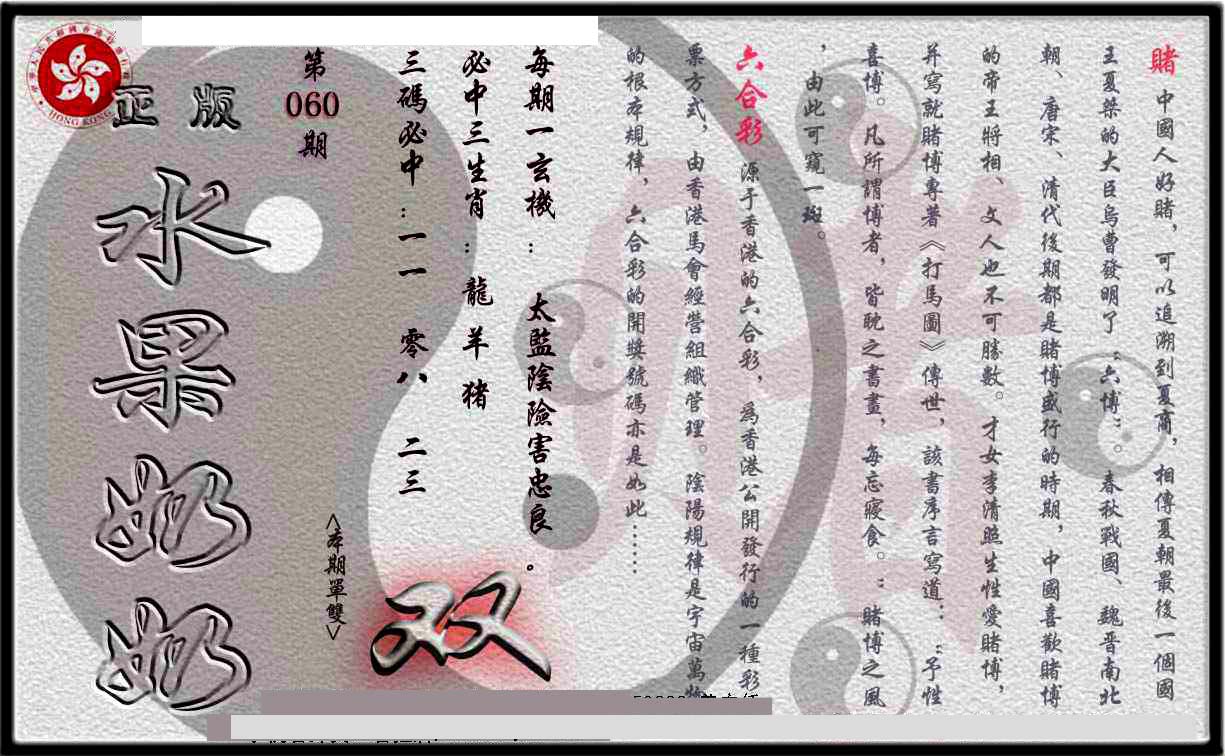 賭 中國人好賭，可以追溯到夏商，相傳夏朝最後一個國
王夏桀的大臣烏曹發明了“六博”。春秋戰國、魏晋南北
朝、唐宋、清代後期都是賭博盛行的時期，中國喜歡賭博
的帝王將相、文人也不可勝數。才女李清照生性愛賭博，
并寫就賭博專著《打馬圖》傳世，該書序言寫道：“予性
喜博。凡所謂博者，皆耽之書畫，每忘寢食。”賭博之風
，由此可窺一斑。
六合彩 源于香港的六合彩，爲香港公開發行的一種彩
票方式，由香港馬會經營組織管理。陰陽規律是宇宙萬物
的根本規律，六合彩的開獎號碼亦是如此……
每期一玄機：太監陰險害忠良。
必中三生肖：龍 羊 猪
三碼必中：一一 零八 二三
双
第060期
<本期單雙>
正版
水果奶奶
HONG KONG